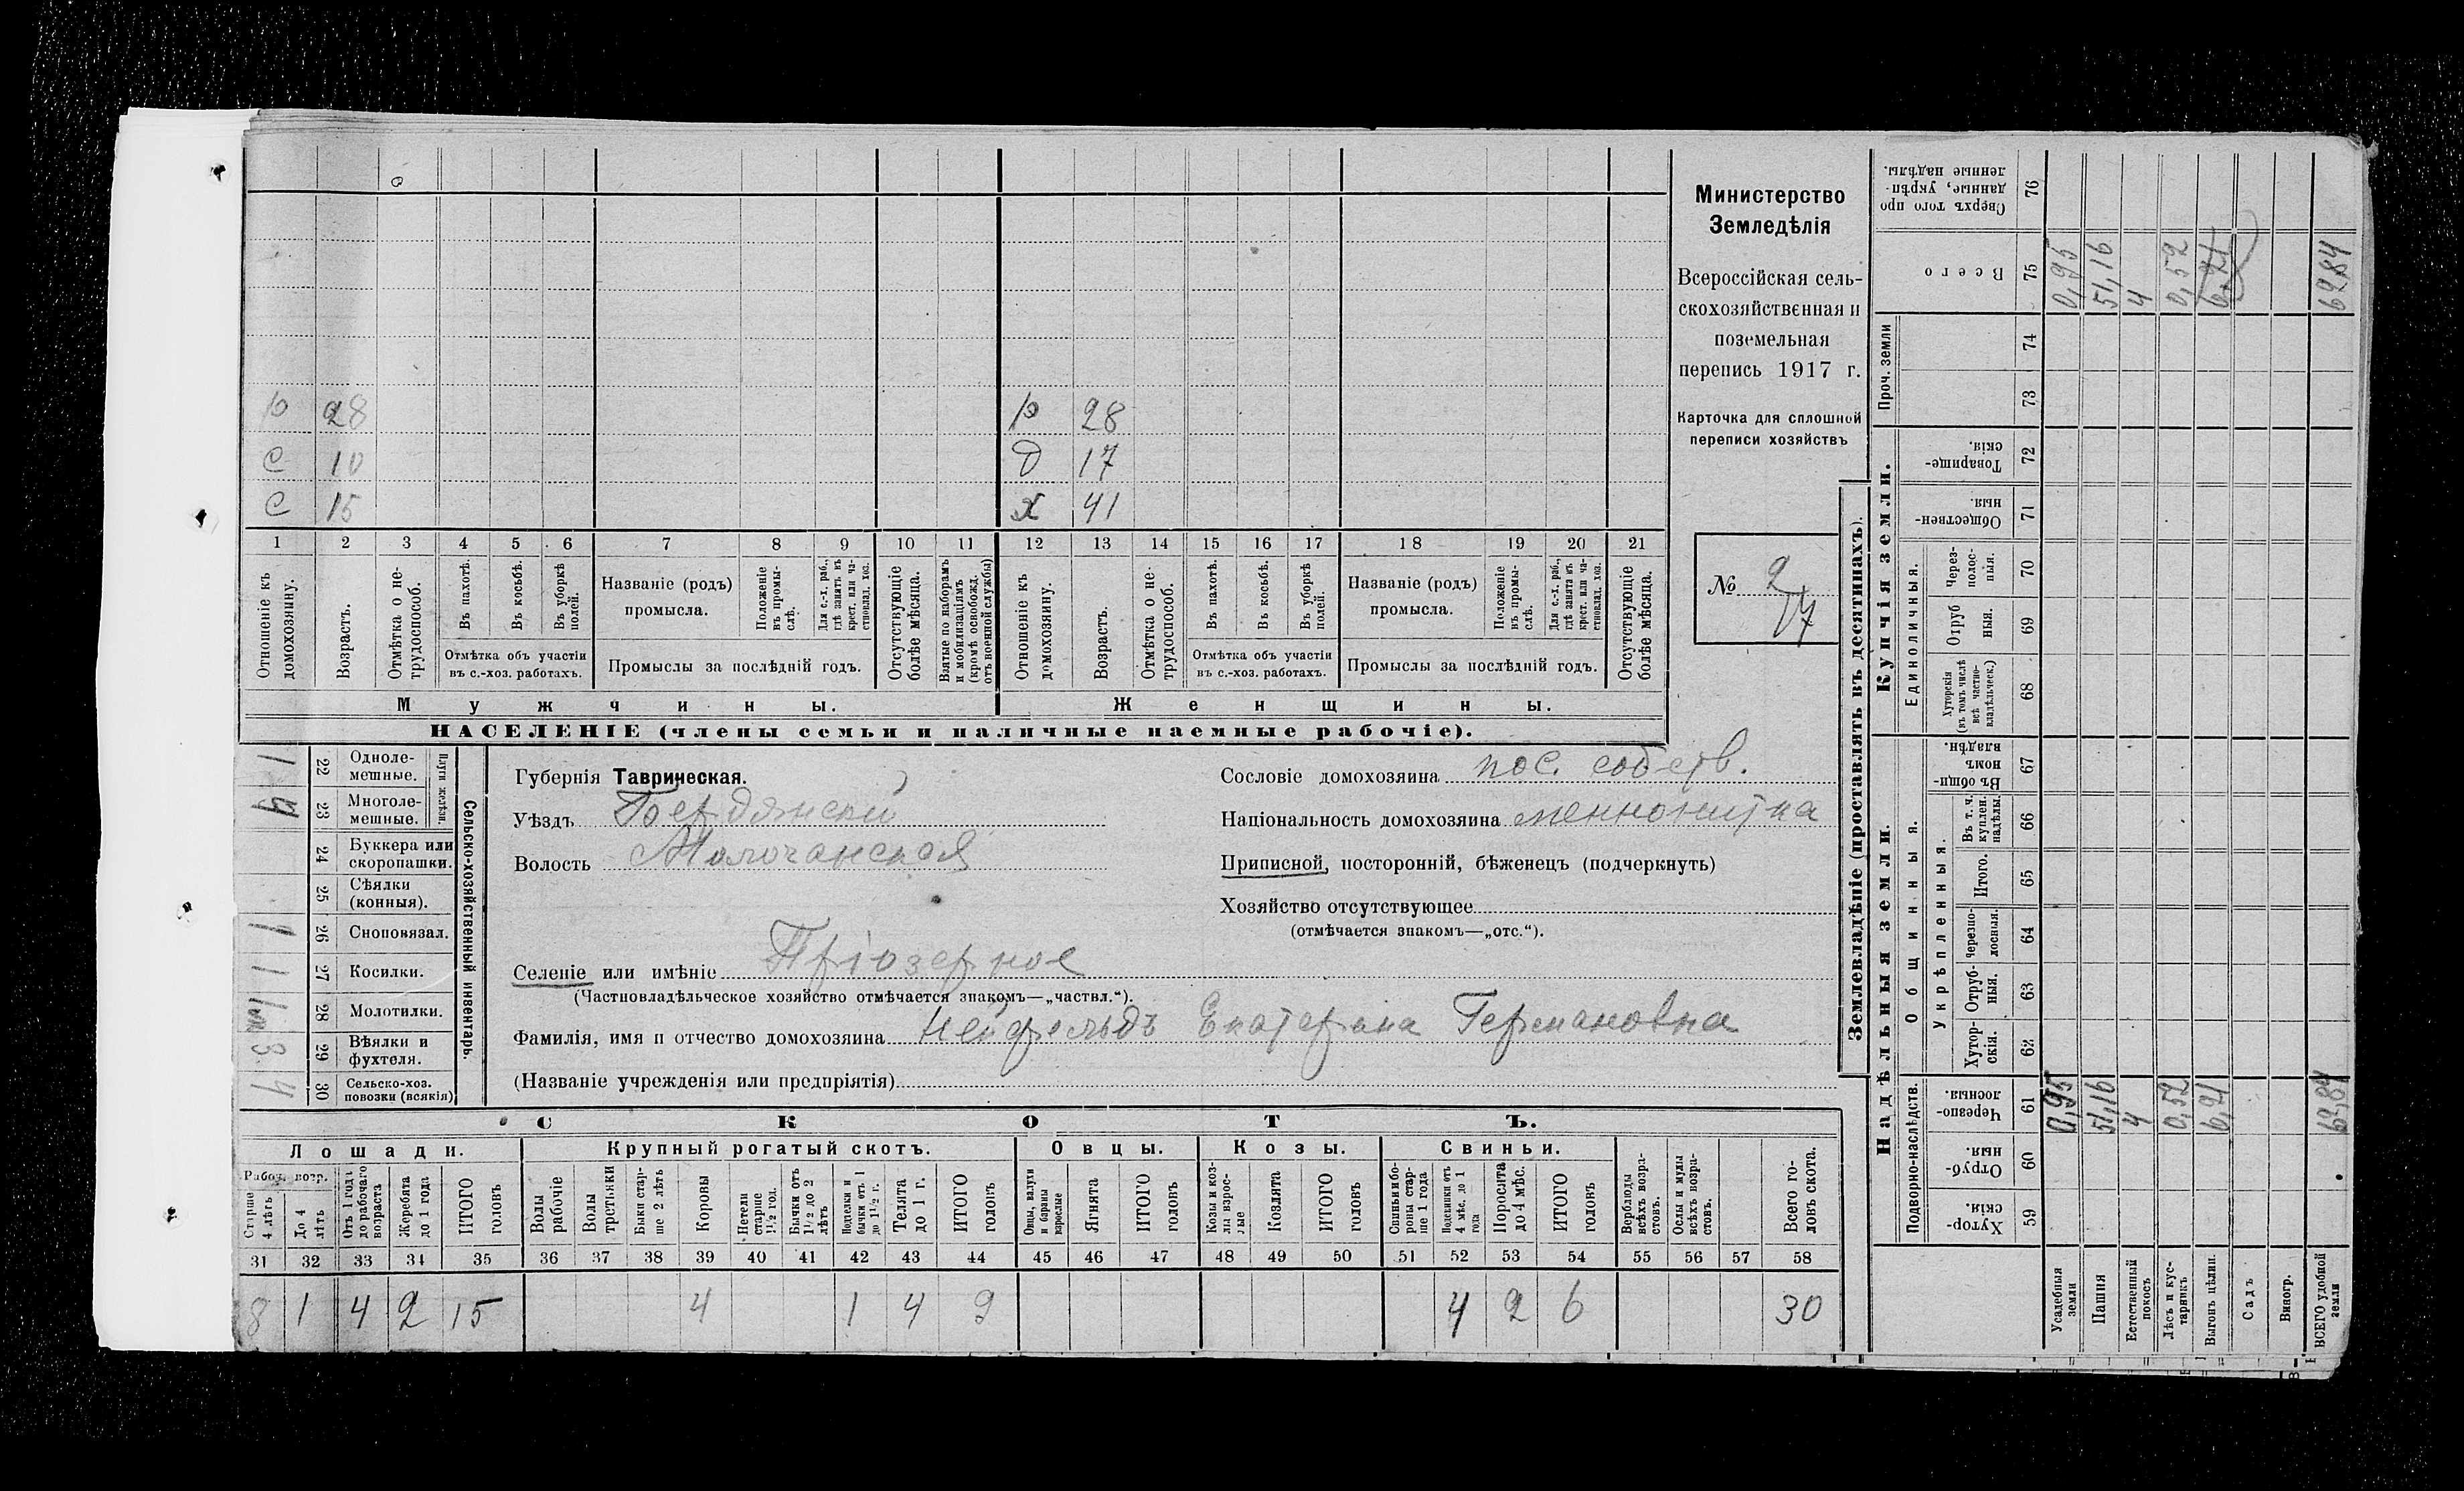 р 28 р 28
С 10 д 17
С 15 х 41
1 2 3 4 5 6 7 8 9 10 11 12 13 14 15 16 17 18 19 20 21
Отношеніе къ домохозяину.
Возрастъ.
Отмѣтка о нетрудоспособ.
Въ пахотѣ.
Въ косьбѣ.
Въ уборкѣ полей.
Отмѣтка объ участіи въ с.-хоз. работахъ.
Названіе (родъ) промысла.
Положеніе въ промыслѣ.
Для с.-х. раб., гдѣ занятъ въ крест. или частновлад. хоз.
Промыслы за послѣдній годъ.
Отсутствующіе болѣе мѣсяца.
Взятые по наборамъ и мобилизаціямъ (кромѣ освобожд. отъ военной службы)
Отношеніе къ домохозяину.
Возрастъ.
Отмѣтка о нетрудоспособ.
Въ пахотѣ.
Въ косьбѣ.
Въ уборкѣ полей.
Отмѣтка объ участіи въ с.-хоз. работахъ.
Названіе (родъ) промысла.
Положеніе въ промыслѣ.
Для с.-х. раб., гдѣ занята въ крест. или частновлад. хоз.
Промыслы за послѣдній годъ.
Отсутствующіе болѣе мѣсяца.
Мужчины. Женщины.
НАСЕЛЕНІЕ (члены семьи и наличные наемные рабочіе).
Министерство
Земледѣлія
Всероссійская сель-
скохозяйственная и
поземельная
перепись 1917 г.
Карточка для сплошной
переписи хозяйствъ
№ 2
Сельско-хозяйственный инвентарь.
Плуги желѣзн.
22 Однолемешные. 1
23 Многолемешные.
24 Буккера или скоропашки.
25 Сѣялки (конныя).
26 Сноповязал. 1
27 Косилки. 1
28 Молотилки. 1
29 Вѣялки и фухтеля. 3
30 Сельско-хоз. повозки (всякія) 4
Губернія Таврическая.
Уѣздъ Бердянскій
Волость Молочанская
Сословіе домохозяина пос. собств.
Національность домохозяина меннонитка
Приписной, посторонній, бѣженецъ (подчеркнуть)
Хозяйство отсутствующее
(отмѣчается знакомъ—„отс.“).
Селеніе или имѣніе Пріозерное
(Частновладѣльческое хозяйство отмѣчается знакомъ—„частвл.“).
Фамилія, имя и отчество домохозяина Нейфельдъ Екатерина Германовна
(Названіе учрежденія или предпріятія)
СКОТЪ.
Лошади. Крупный рогатый скотъ. Овцы. Козы. Свиньи.
Рабоч. возр.
Старше 4 лѣтъ
До 4 лѣтъ
Отъ 1 года до рабочаго возраста
Жеребята до 1 года
ИТОГО головъ
Волы рабочіе
Волы третьяки
Быки старше 2 лѣтъ
Коровы
Нетели старше 1½ год.
Бычки отъ 1½ до 2 лѣтъ
Подтелки и бычки отъ 1 до 1½ г.
Телята до 1 г.
ИТОГО головъ
Овцы, валухи и бараны взрослые
Ягнята
ИТОГО головъ
Козы и козлы взрослые
Козлята
ИТОГО головъ
Свиньи и бороны старше 1 года
Подсвинки отъ 4 мѣс. до 1 года
Поросята до 4 мѣс.
ИТОГО головъ
Верблюды всѣхъ возрастовъ.
Ослы и мулы всѣхъ возрастовъ.
Всего головъ скота.
31 32 33 34 35 36 37 38 39 40 41 42 43 44 45 46 47 48 49 50 51 52 53 54 55 56 57 58
8 1 4 2 15 4 1 4 9 4 2 6 30
Землевладѣніе (проставлять въ десятинахъ).
Надѣльныя земли.
Подворно-наслѣдств.
Хуторскія. 59
Отрубныя. 60
Черезполосныя. 61
Общинныя.
Укрѣпленныя.
Хуторскія. 62
Отрубныя. 63
Черезполосныя. 64
Итого. 65
Въ т. ч. куплен. надѣлы. 66
Въ общинномъ владѣн. 67
Купчія земли.
Единоличныя.
Хуторскія (въ томъ числѣ всѣ частновладѣльческ.) 68
Отрубныя. 69
Черезполосныя. 70
Общественныя. 71
Товарищескія. 72
Проч. земли
73
74
Всего 75
Сверхъ того проданные, укрѣпленные надѣлы. 76
Усадебныя земли 0,95 0,95
Пашня 51,16 51,16
Естественный покосъ 4 4
Лѣсъ и кустарникъ 0,52 0,52
Выгонъ цѣлин. 6,21
Садъ
Виногр.
ВСЕГО удобной земли 62,84 62,84